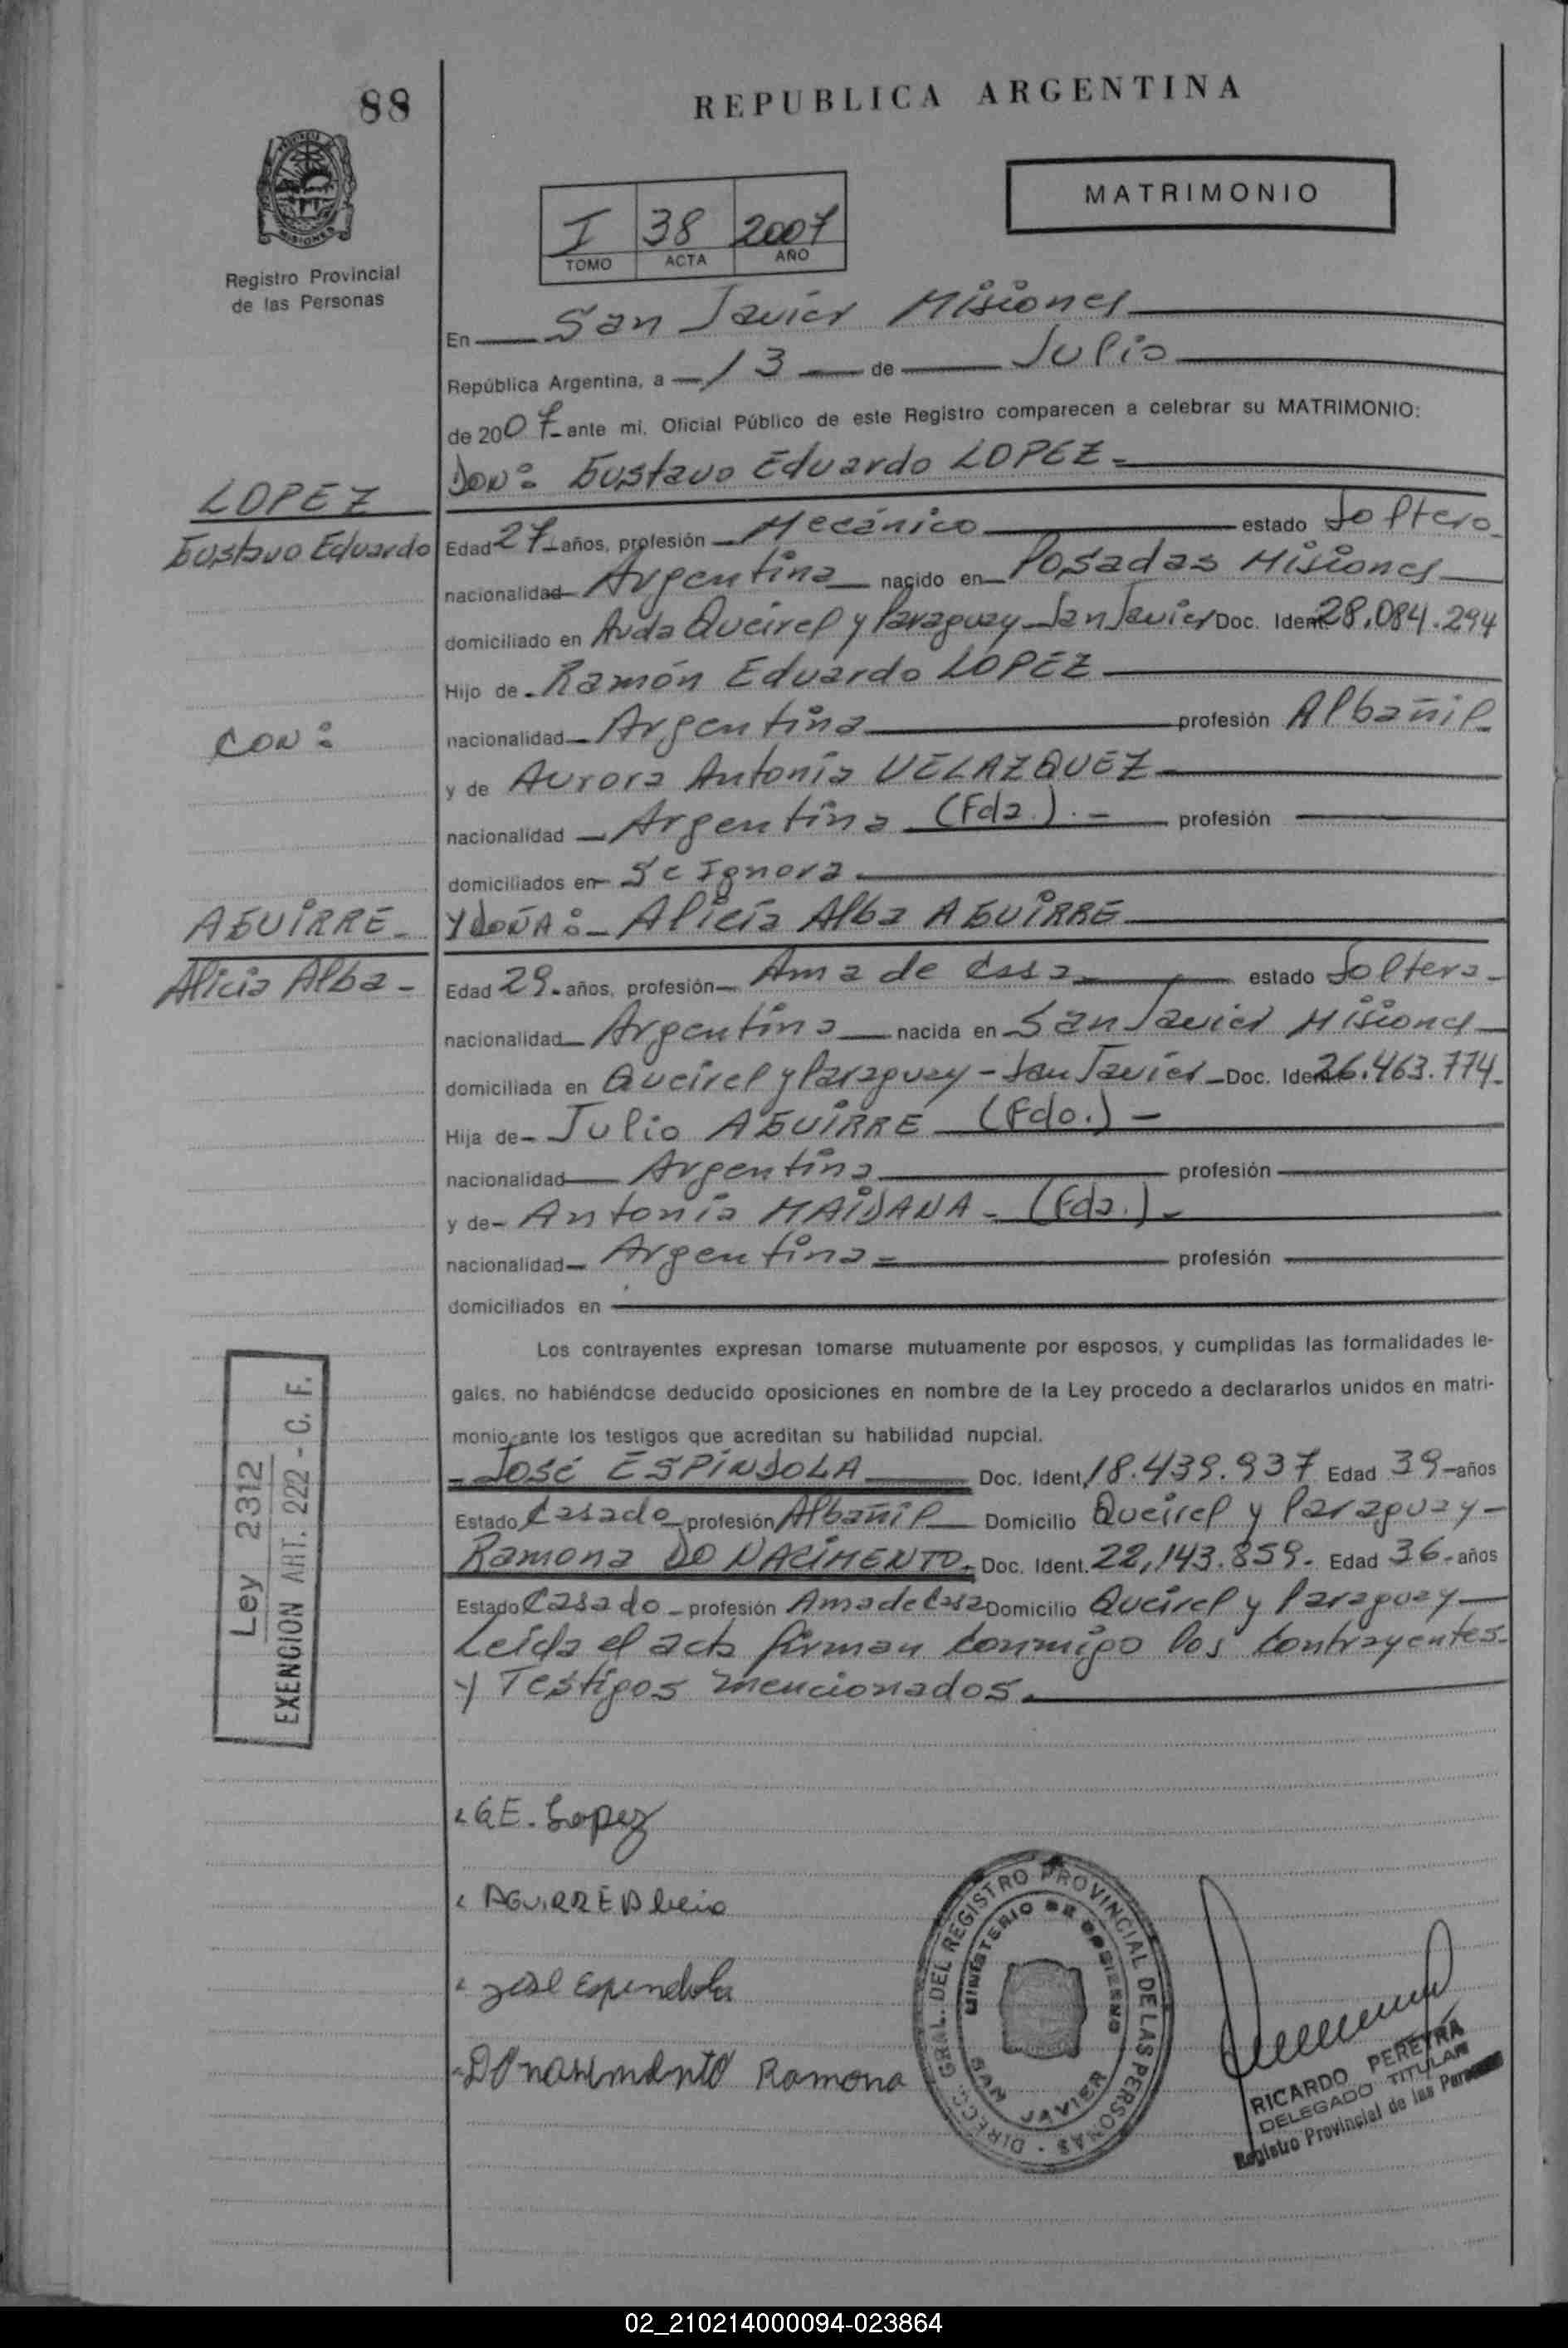 88
REPUBLICA ARGENTINA
MATRIMONIO
I 38 2007
TOMO ACTA AÑO
MISIONES
Registro Provincial
de las Personas
En San Javier Misiones
República Argentina, a 13 de Julio
de 2007 ante mi, Oficial Público de este Registro comparecen a celebrar su MATRIMONIO:
DON: Gustavo Eduardo LOPEZ
LOPEZ
Gustavo Eduardo
Edad 27 años, profesión Mecánico estado Soltero
nacionalidad Argentina nacido en Posadas Misiones
domiciliado en Avda Queirel y Paraguay San Javier Doc. Ident. 28.084.294
Hijo de Ramón Eduardo LOPEZ
nacionalidad Argentina profesión Albañil
CON:
y de Aurora Antonia VELAZQUEZ
nacionalidad Argentina (Fda.). profesión
domiciliados en Se Ignora
AGUIRRE
Alicia Alba
Y DOÑA: Alicia Alba AGUIRRE
Edad 29 años, profesión Ama de Casa estado Soltera
nacionalidad Argentina nacida en San Javier Misiones
domiciliada en Queirel y Paraguay - San Javier Doc. Ident. 26.463.774
Hija de Julio AGUIRRE (Fdo.)
nacionalidad Argentina profesión
y de Antonia MAIDANA (Fda.)
nacionalidad Argentina profesión
domiciliados en
Los contrayentes expresan tomarse mutuamente por esposos, y cumplidas las formalidades le-
gales, no habiéndose deducido oposiciones en nombre de la Ley procedo a declararlos unidos en matri-
monio, ante los testigos que acreditan su habilidad nupcial.
José ESPINDOLA Doc. Ident. 18.439.937 Edad 39 años
Estado Casado profesión Albañil Domicilio Queirel y Paraguay
Ramona DO NACIMENTO. Doc. Ident. 22,143.859. Edad 36 años
Estado Casado profesión Ama de Casa Domicilio Queirel y Paraguay
Leída el acta firman conmigo los contrayentes
y Testigos mencionados.
Ley 2312
EXENCION ART. 222 - C. F.
G E. Lopez
AGUIRRE Alicia
José Espindola
DO nasimento Ramona
DIRECC. GRAL. DEL REGISTRO PROVINCIAL DE LAS PERSONAS
MINISTERIO DE GOBIERNO
SAN JAVIER
RICARDO PEREYRA
DELEGADO TITULAR
Registro Provincial de las Personas
02_210214000094-023864